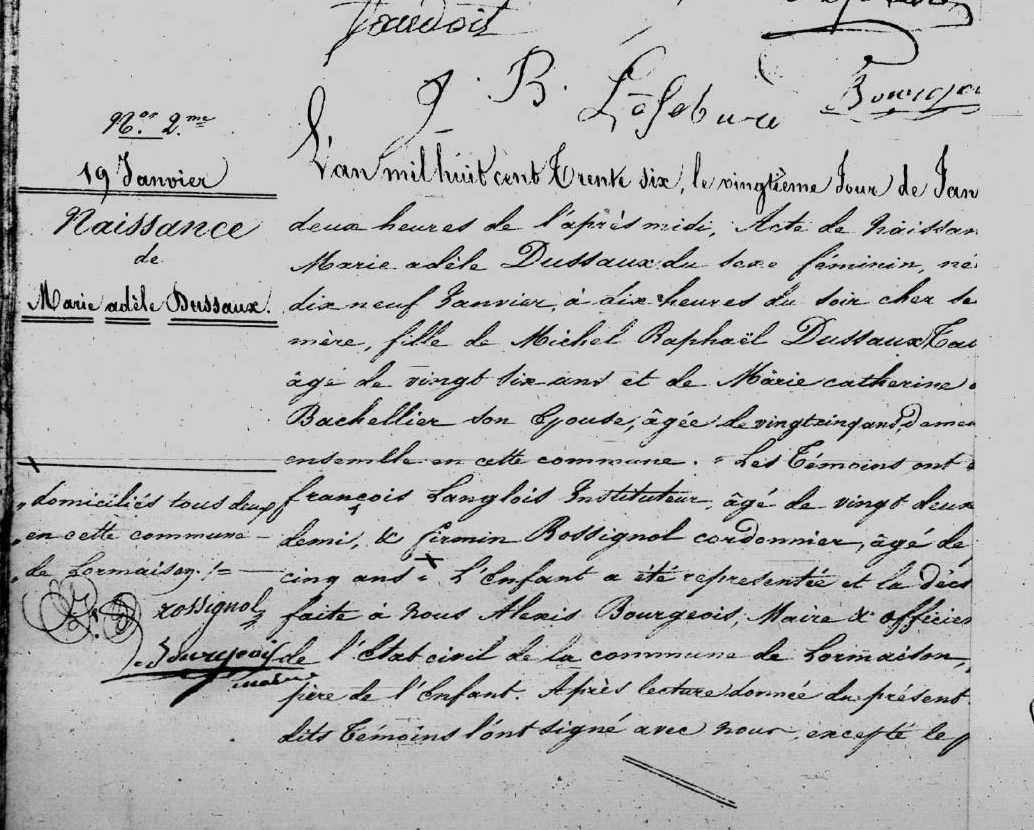 J. B. Lefebure
N.os 2.me
19 Janvier
Naissance
de
Marie adèle Dussaux.
L'an mil huit cent Trente six, le vingtième Jour de Jan
deux heures de l'après midi, Acte de Naissan
Marie adèle Dussaux du sexe féminin, né
dix neuf Janvier, à dix heures du soir cher se
mère, fille de Michel Raphaël Dussaux
âgé de vingt six ans et de Marie catherine
Bachellier son Epouse, âgée de vingt cinq ans, demeu
ensemble en cette commune. Les Témoins ont
françois Langlois Instituteur, âgé de vingt deux
demi, & firmin Rossignol cordonnier, âgé de
cinq ans. L'Enfant a été représentée et la décl
faite à nous Alexis Bourgeois, Maire & officier
de l'Etat civil de la commune de Lormaison,
père de l'Enfant. Après lecture donnée du présent
dits Témoins l'ont signé avec nous, excepté le p
domiciliés tous deux
en cette commune
de Lormaison
rossignol
Bourgeois